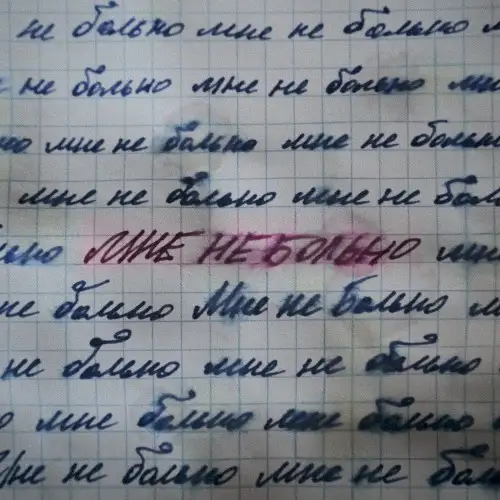 не больно мне не больно
не больно мне не больно мне
мне не больно мне не больно
мне не больно мне не
МНЕ НЕ БОЛЬНО
не больно Мне не Больно
не больно мне не больно
мне больно мне больно
мне не больно мне не